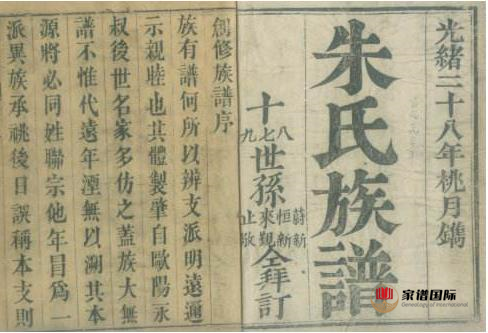 光緒二十八年桃月鐫
朱氏族譜
十八七九世孫蔚新恒新來覲止敬仝拜訂
創修族譜序
族有譜何所以辨支派明遠邇
示親睦也其體製肇自歐陽永
叔後世名家多仿之蓋族大無
譜不惟代遠年湮無以溯其本
源將必同姓聯宗他年目為一
派異族承祧後日誤稱本支則
家谱国际
Genealogy of International